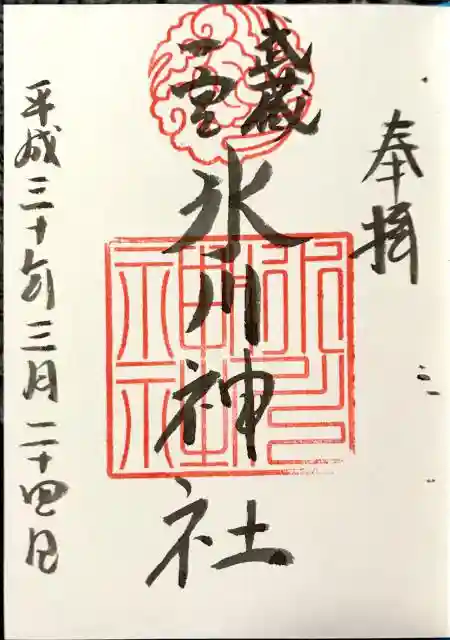 奉拝
武蔵
一宮
氷川神社
氷川
神社
平成三十年三月二十四日